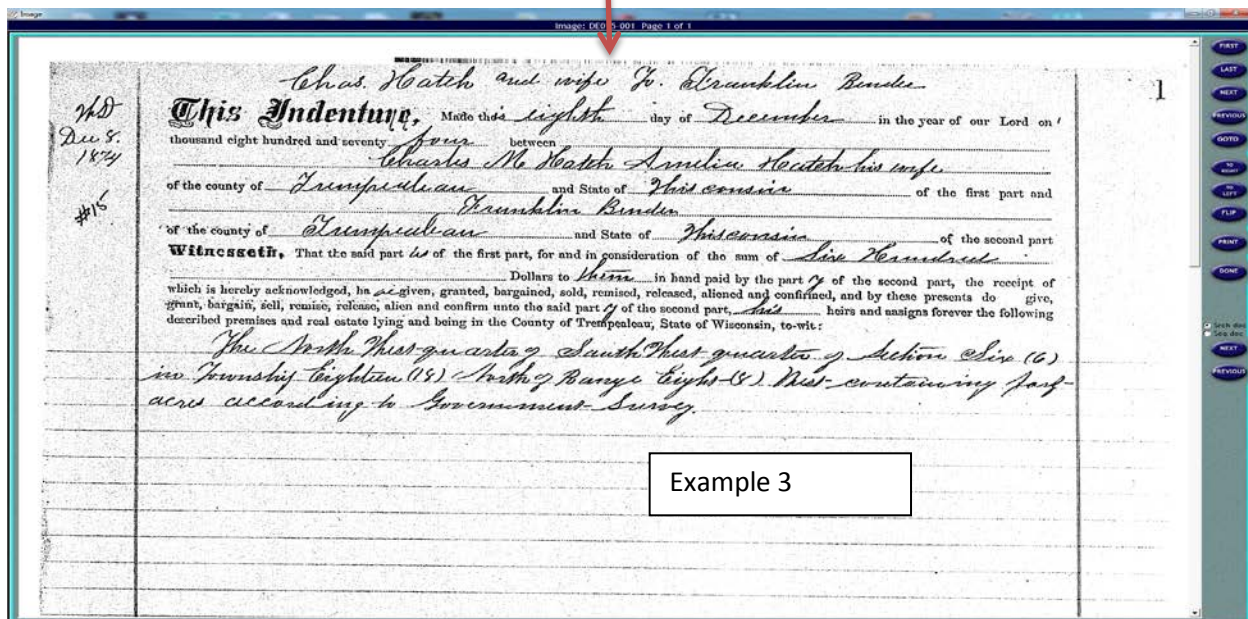 Image
Image: DE015-001 Page 1 of 1
Chas. Hatch and wife To. Franklin Bender
1
WD
Dec 8.
1874
#15
This Indenture, Made this eighth day of December in the year of our Lord on
thousand eight hundred and seventy four between
Charles M Hatch Amelia Hatch his wife
of the county of Trempealeau and State of Wisconsin of the first part and
Franklin Bender
of the county of Trempealeau and State of Wisconsin of the second part
Witnesseth, That the said part ies of the first part, for and in consideration of the sum of Six Hundred
Dollars to them in hand paid by the part y of the second part, the receipt of
which is hereby acknowledged, ha ve given, granted, bargained, sold, remised, released, aliened and confirmed, and by these presents do give,
grant, bargain, sell, remise, release, alien and confirm unto the said part y of the second part, his heirs and assigns forever the following
described premises and real estate lying and being in the County of Trempealeau, State of Wisconsin, to-wit:
The North West quarter of South West quarter of Section Six (6)
in Township Eighteen (18) North of Range Eight (8) West containing
acres according to Government Survey.
Example 3
FIRST
LAST
NEXT
PREVIOUS
GOTO
TO RIGHT
TO LEFT
FLIP
PRINT
DONE
Srch doc
Seq doc
NEXT
PREVIOUS